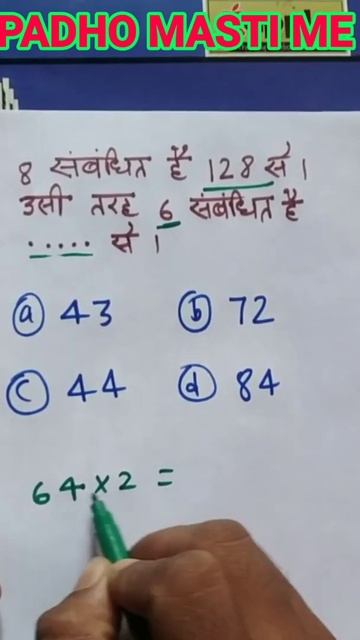 PADHO MASTI ME
8 संबंधित है 128 से।
उसी तरह 6 संबंधित है
..... से ।
(a) 43 (b) 72
(c) 44 (d) 84
64×2 =